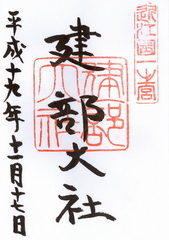 近江國一之宮
建部大社
平成十九年十一月十七日